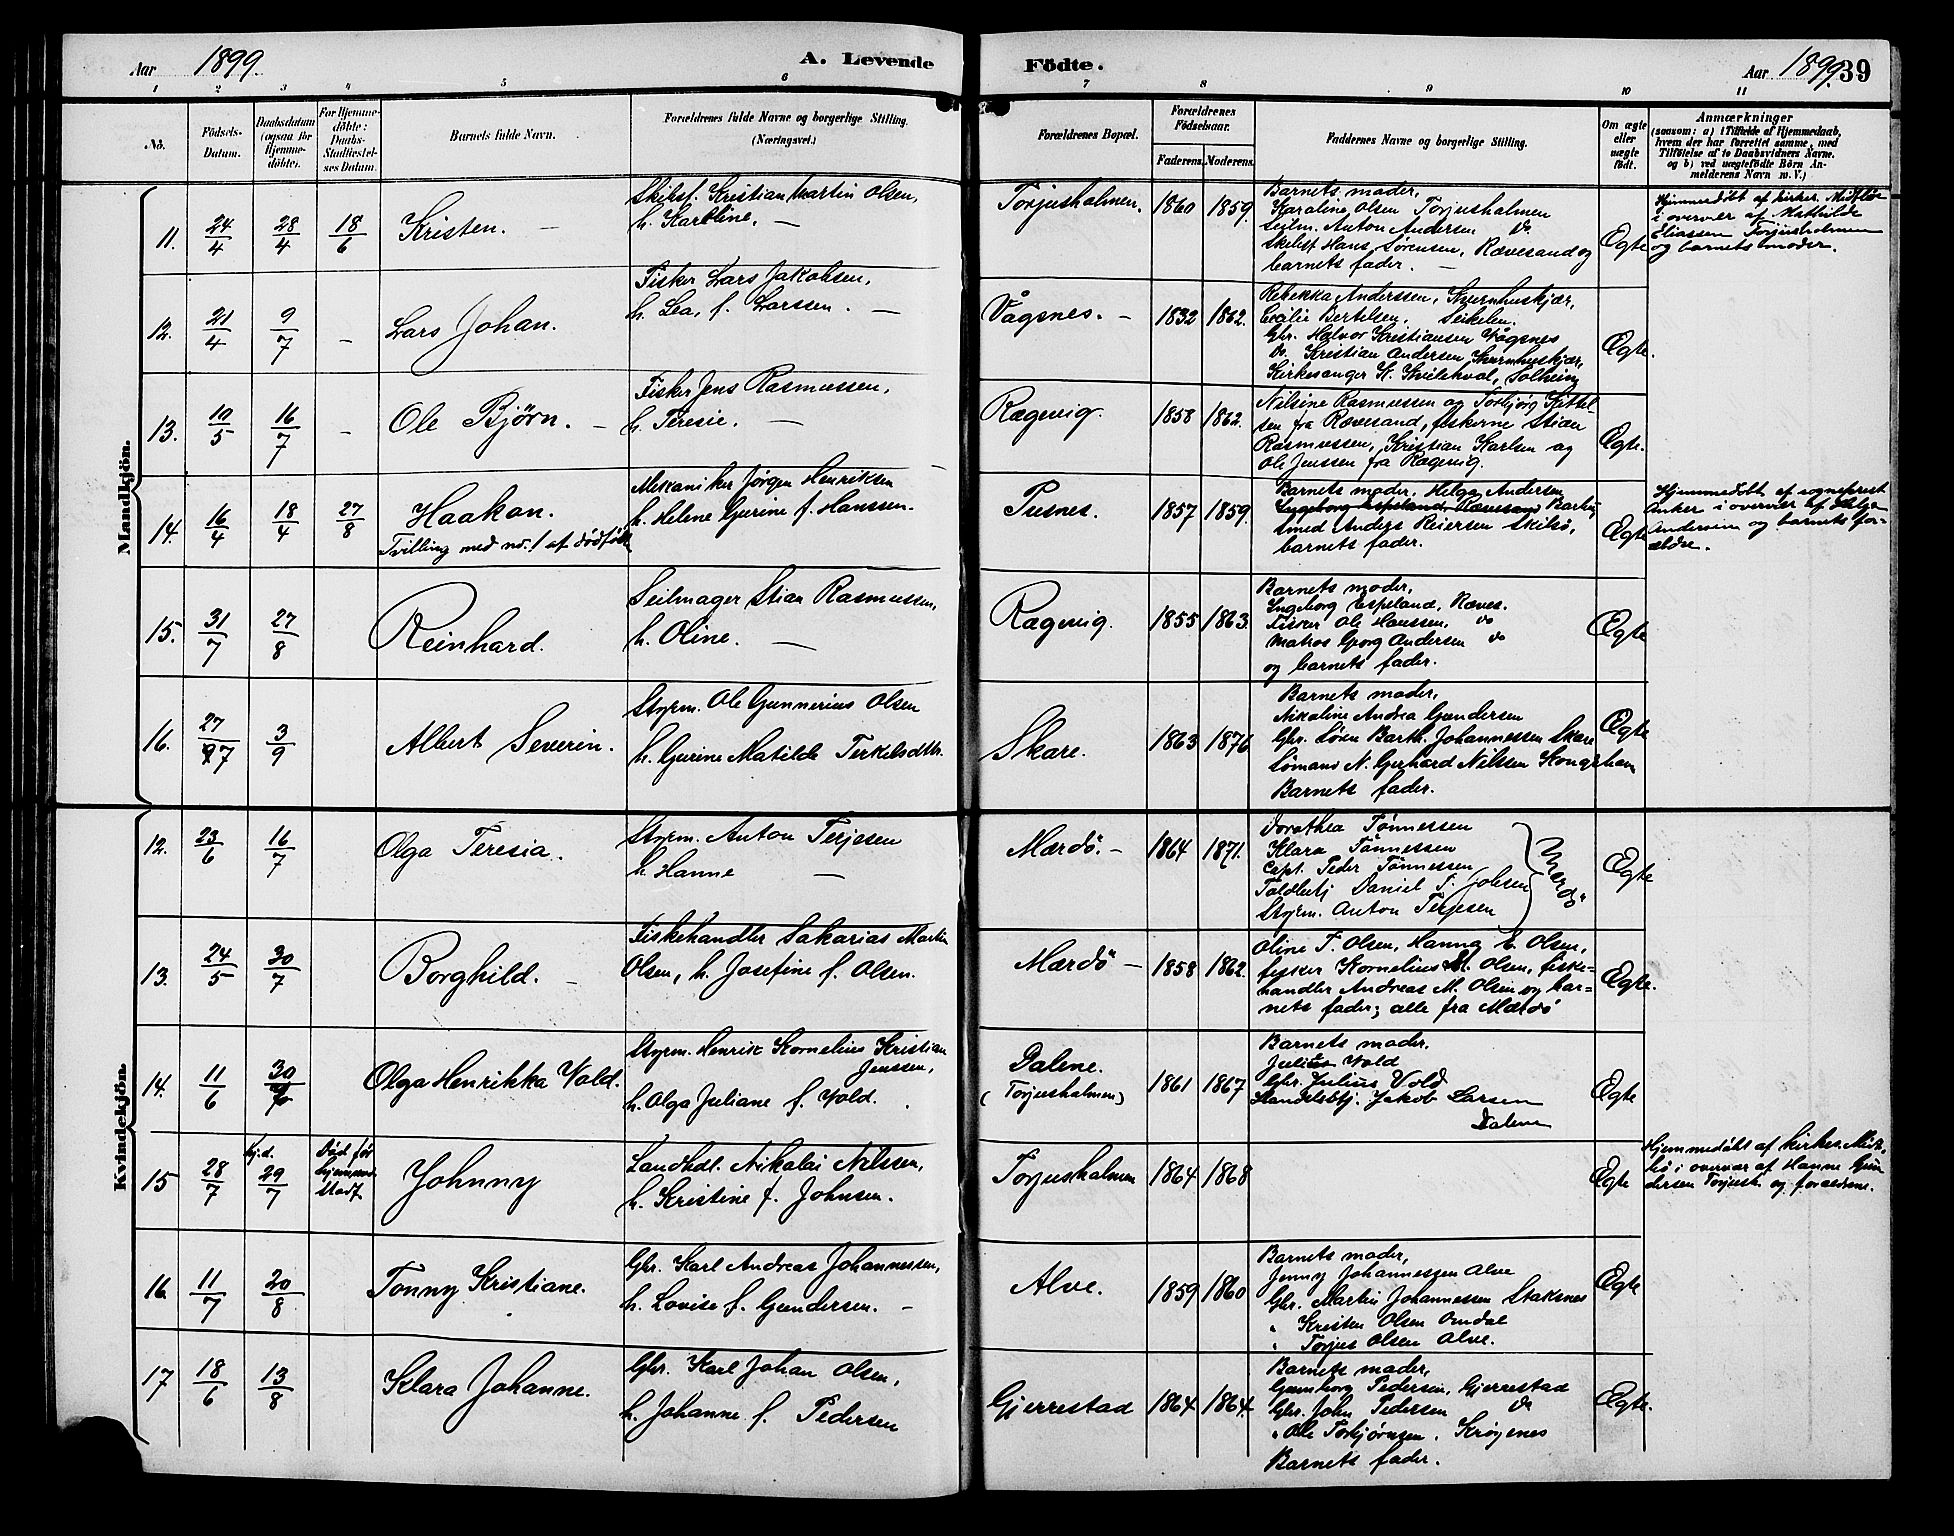 Aar 1899.
A. Levende
Födte.
Aar 1899.
39
1 2 3 4 5 6 7 8 9 10 11
No.
Födsels-
Datum.
Daabsdatum
(ogsaa for
Hjemme-
döbte).
For Hjemme-
döbte:
Daabs-
Stadfæstel-
ses Datum.
Barnets fulde Navn.
Forældrenes fulde Navne og borgerlige Stilling.
(Næringsvei.)
Forældrenes Bopæl.
Forældrenes
Födselsaar.
Faderens. Moderens.
Faddernes Navne og borgerlige Stilling.
Om ægte
eller
uægte
födt.
Anmærkninger
(saasom: a) i Tilfælde af Hjemmedaab,
hvem der har forrettet samme, med
Tilföielse af to Daabsvidners Navne.
og b) ved uægtefödte Börn An-
melderens Navn m. V.)
Mandkjön.
11. 24/4 28/4 18/6 Kristen. —
Skibsf. Kristian Martin Olsen,
h. Karoline. —
Torjusholmen. 1860 1859.
Barnets moder,
Karoline Olsen Torjusholmen
Seilm. Anton Andersen do
Skibsf Hans Sørensen, Rævesand og
barnets fader. —
Ægte
Hjemmedöbt af kirkes. Midtbö
i overvær af Mathilde
Eliassen Torjusholmen
og barnets moder.
12. 21/4 9/7 — Lars Johan.
Fisker Lars Jakobsen,
h. Lea, f. Larssen. —
Vågsnes. — 1832 1862.
Rebekka Anderssen,
Cecilie Bertelsen,
Gbr. Halvor Kristiansen Vågsnes
do. Kristian Andersen
Kirkesanger K. Solheim
Ægte.
13. 10/5 16/7 — Ole Bjørn. —
Fisker Jens Rasmussen,
h. Teresie. —
Rægevig. 1858 1862.
Nilsine Rasmussen og Torbjørg Kittel-
sen fra Rævesand, fiskerne Stian
Rasmussen, Kristian Karlsen og
Ole Jenssen fra Rægevig.
Ægte.
14. 16/4 18/4 27/8 Haakon.
Tvilling med no. 1 af dødfødte
Mekaniker Jørgen Henriksen
h. Helene Gurine f. Hanssen.
Pusnes. 1857 1859.
Barnets moder, Helga Andersen
Ingeborg Espeland Rævesand
smed Anders Reiersen Skilsö,
barnets fader.
Ægte
Hjemmedöbt af sogneprest
Anker i overvær af Helga
Andersen og barnets for-
ældre.
15. 31/7 27/8 Reinhard.
Seilmager Stian Rasmussen,
h. Oline. —
Rægevig. 1855 1863.
Barnets moder,
Ingeborg Espeland, Ræves.
Fisker Ole Hanssen, do
Matros Georg Andersen do
og barnets fader.
Ægte
16. 27/7 3/9 Albert Severin.
Styrm. Ole Gunnerius Olsen
h. Gurine Matilde Terkelsdttr.
Skare. 1863 1876
Barnets moder,
Nikoline Andrea Gundersen
Gbr. Sören Barth. Johannessen Skare
Sömand N. Gerhard Nilssen Kongshavn
Barnets fader.
Ægte
Kvindekjön.
12. 23/6 16/7 Olga Teresia.
Styrm. Anton Terjesen
h. Hanne —
Mærdö. — 1864 1871.
Dorothea Tönnessen
Klara Tönnessen
Capt. Peder Tönnessen
Toldbetj Daniel T. Jobsen
Styrm. Anton Terjesen
Mærdö
Ægte
13. 24/5 30/7 Borghild. —
Fiskehandler Sakarias Martin
Olsen, h. Josefine f. Olsen.
Mærdö — 1858 1862.
Oline T. Olsen, Hanna E. Olsen,
fisker Kornelius M. Olsen, fiske-
handler Andreas M. Olsen og bar-
nets fader; alle fra Mærdö
Ægte.
14. 11/6 30/7 Olga Henrikka Vold.
Styrm. Henrik Kornelius Kristian
Jenssen,
h. Olga Juliane f. Vold.
Dalene.
(Torjusholmen) 1861 1867
Barnets moder.
Vold
Gbr. Julius Vold
Handelsbtj. Jakob Larsen
Dalene
Ægte
15 28/7 hj.d. 29/7 Död før
hjemme
stadf
Johnny
Landhdl. Nikolai Nilssen,
h. Kristine f. Johnsen.
Torjusholmen 1864 1868
Ægte
Hjemmedöbt af kirkes. Midt-
bö i overvær af Hanne Gun
dersen Torjush. og forældrene.
16. 11/7 20/8 Tonny Kristiane.
Gbr. Karl Andreas Johannessen,
h. Lovise f. Gundersen. —
Alve. 1859 1860
Barnets moder,
Jenny Johannessen Alve
Gbr. Martin Johannessen Staksnes
" Kristen Olsen Omdal
" Torjus Olsen Alve.
Ægte
17 18/6 13/8 Klara Johanne.
Gbr. Karl Johan Olsen,
h. Johanne f. Pedersen
Gjerrestad 1864 1864.
Barnets moder,
Gunborg Pedersen, Gjerrestad
Gbr. John Pedersen do
" Ole Torbjörnsen. Kröjenes
Barnets fader.
Ægte.